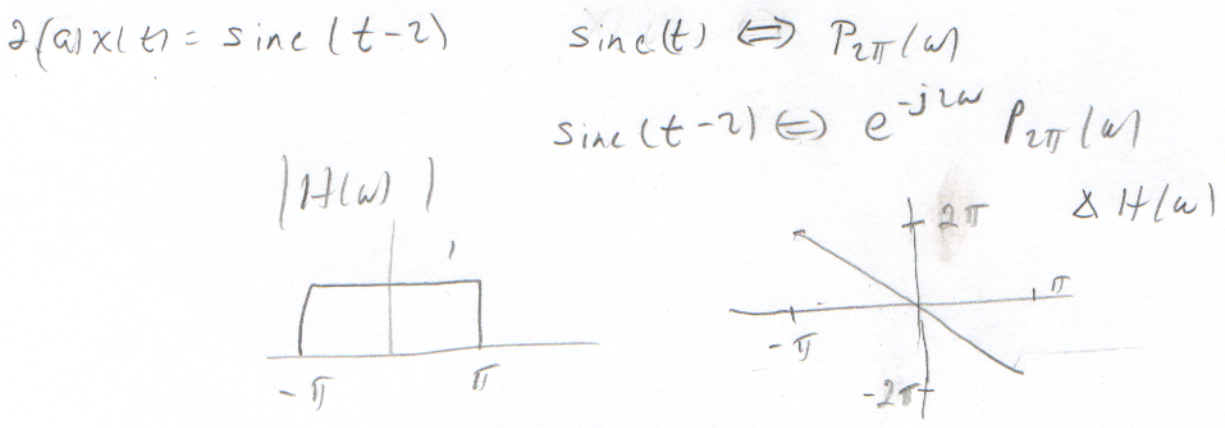 2(a) x(t) = sinc(t-2) sinc(t) ⇔ P2π(ω)
sinc(t-2) ⇔ e^-j2ω P2π(ω)
|H(ω)| ∡ H(ω)
1 2π
-π π -π π
-2π